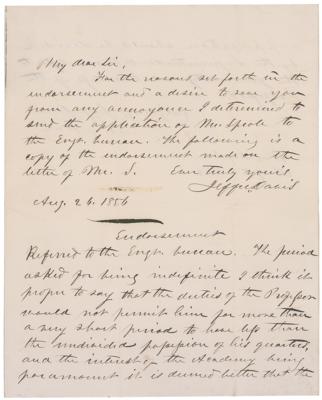 My dear Sir,
For the reasons set forth in the
endorsement and a desire to save you
from any annoyance I determined to
send the application of Mr. Sprole to
the Engr. bureau. The following is a
copy of the endorsement made on the
letter of Mr. S. Ever truly yours
Jeffer. Davis
Aug. 26. 1856
Endorsement
Referred to the Engr. bureau. The period
asked for being indefinite I think it
proper to say that the duties of the Professor
would not permit him for more than
a very short period to have less than
the undivided possession of his quarters,
and the interest of the Academy being
paramount it is deemed better that the